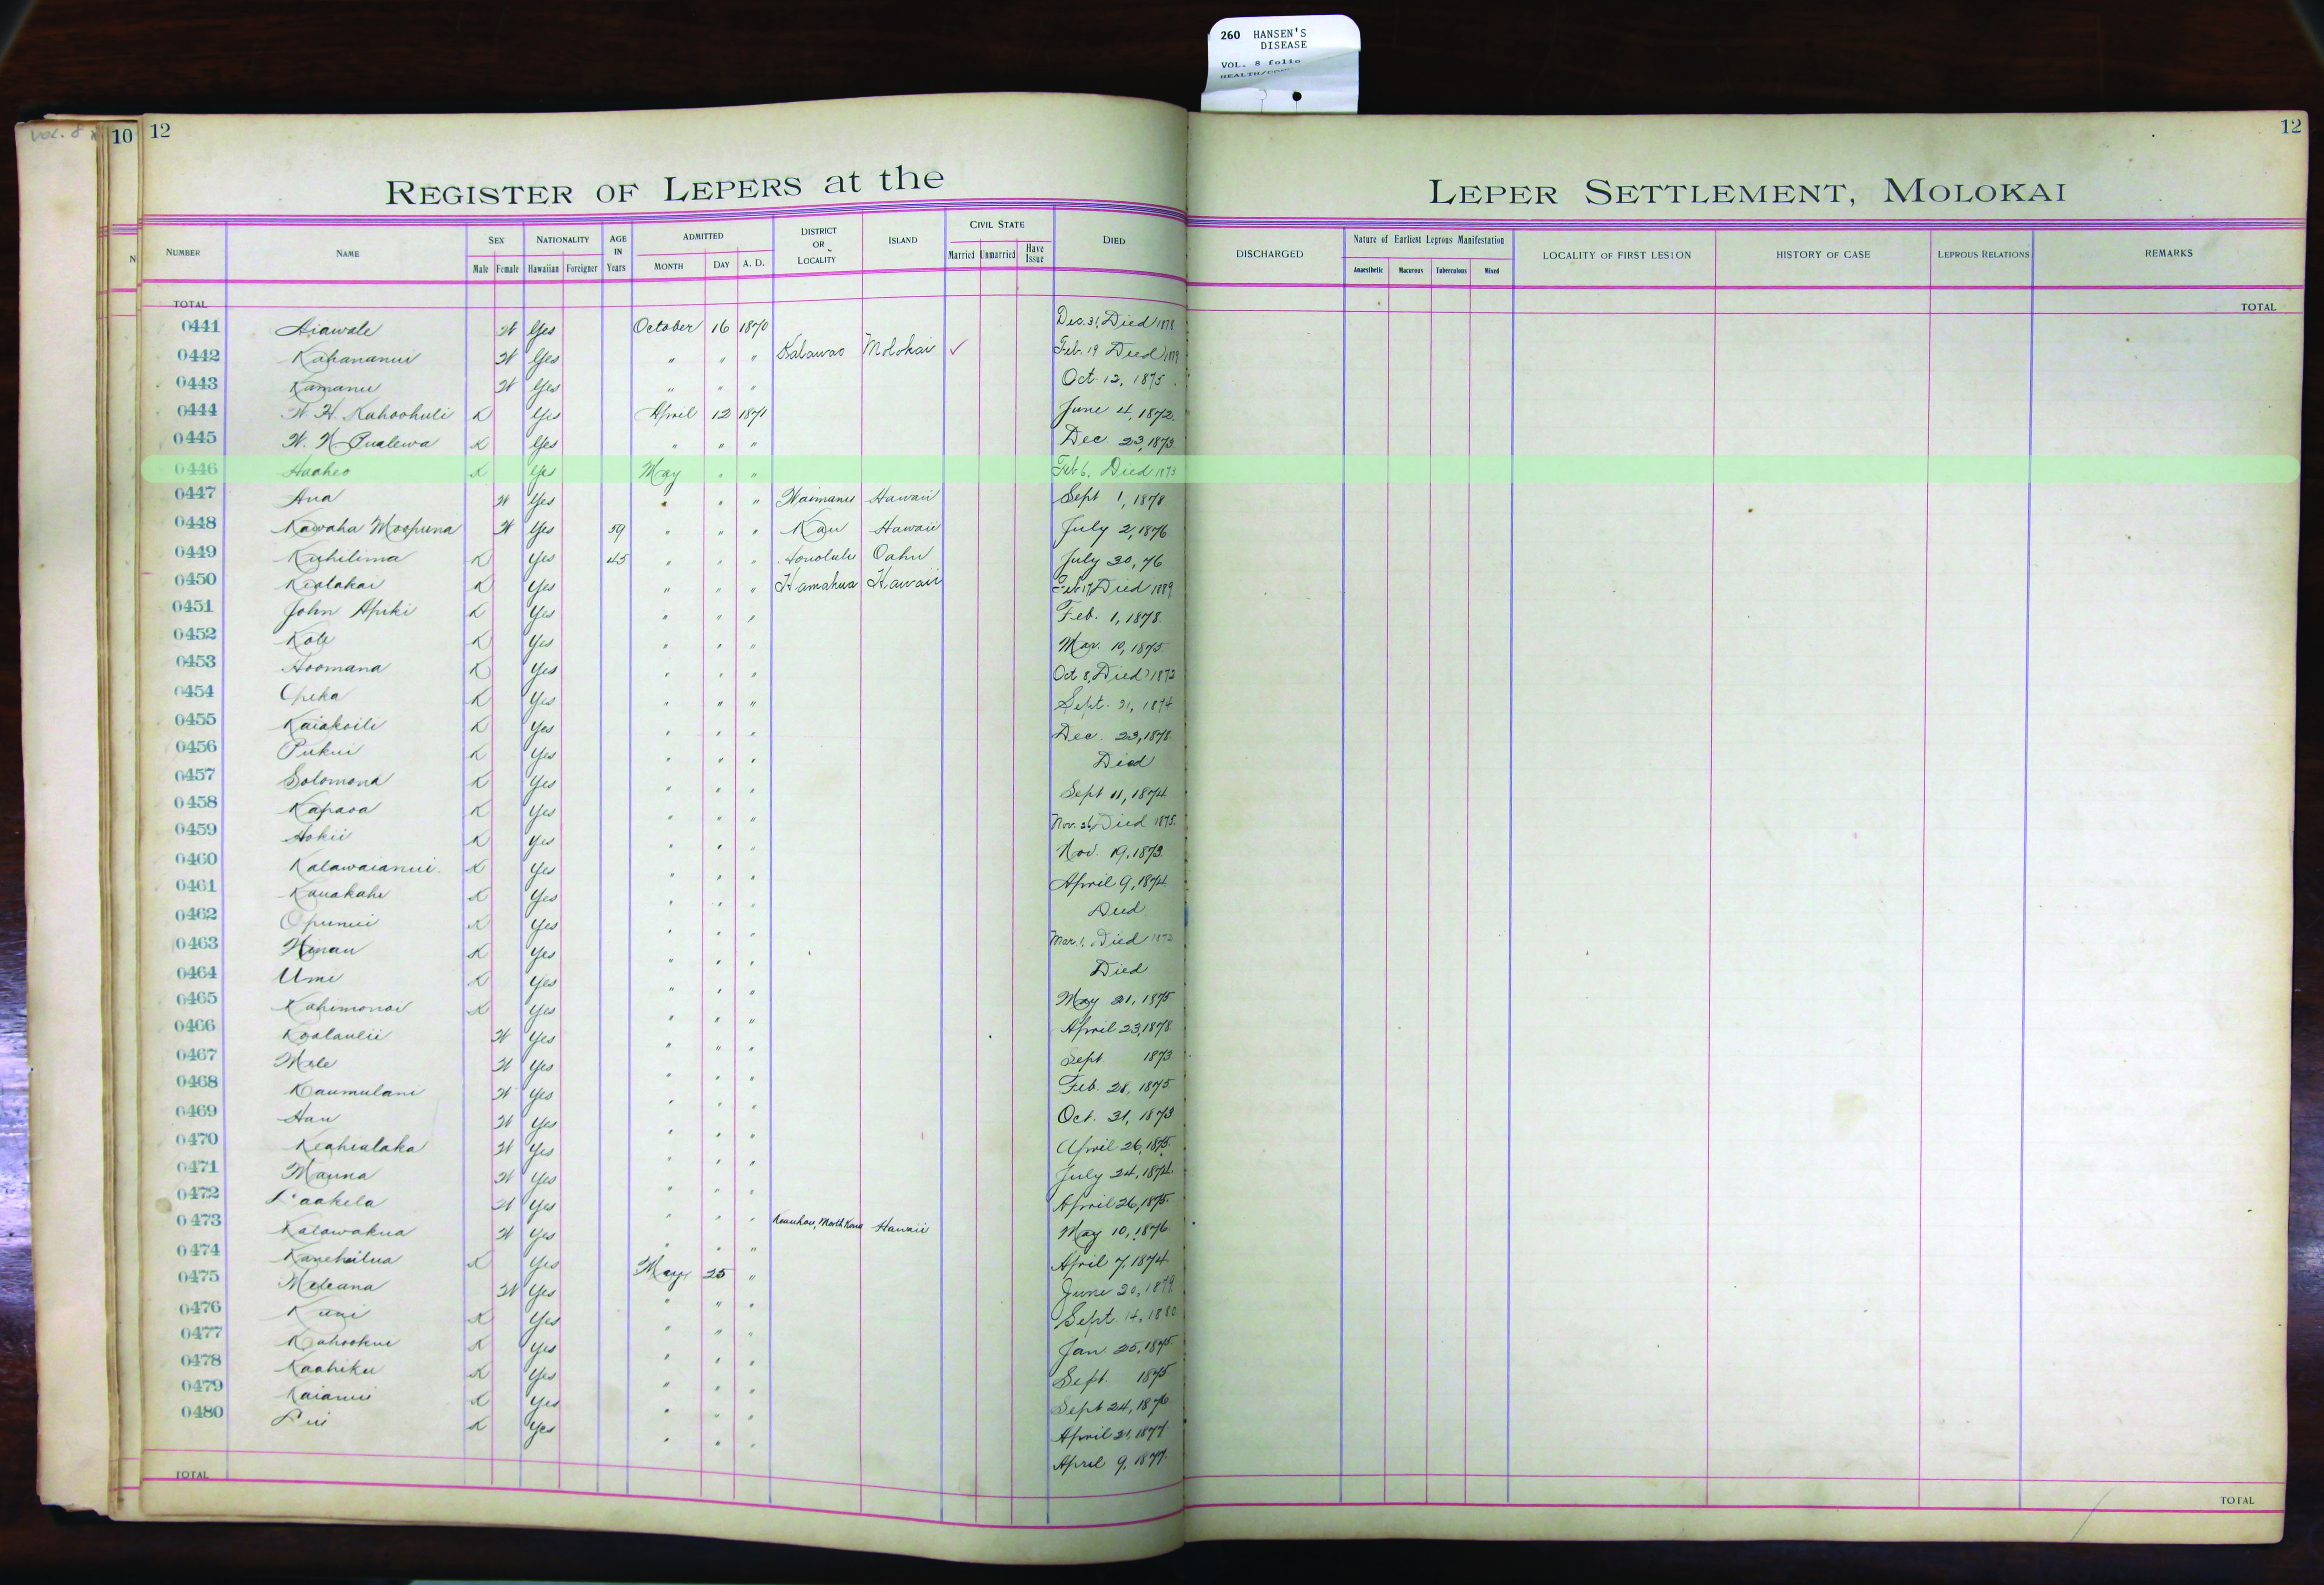 260 HANSEN'S
DISEASE
VOL. 8 folio
VOL. 8
10
12
12
REGISTER OF LEPERS at the LEPER SETTLEMENT, MOLOKAI
NUMBER NAME SEX NATIONALITY AGE IN Years ADMITTED DISTRICT OR LOCALITY ISLAND CIVIL STATE DIED DISCHARGED Nature of Earliest Leprous Manifestation LOCALITY OF FIRST LESION HISTORY OF CASE LEPROUS RELATIONS REMARKS
Male Female Hawaiian Foreigner MONTH DAY A. D. Married Unmarried Have Issue Anaesthetic Macurous Tuberculous Mixed
TOTAL TOTAL
0441 Aiawale W Yes October 16 1870 Dec. 31, Died 1878
0442 Kahananui W Yes " " " Kalawao Molokai ✓ Feb. 19 Died
0443 Kamanu W Yes " " " Oct. 12, 1875
0444 W. H. Kahoohuli K Yes April 12 1871 June 4, 1872.
0445 W. N. Pualewa K Yes " " " Dec. 23, 1873
0446 Haaheo K Yes May " " Feb 6, Died 1873
0447 Ana W Yes " " " Waimanu Hawaii Sept 1, 1878
0448 Kawaha Moopuna W Yes 59 " " " Kau Hawaii July 2, 1876
0449 Kuhilima K Yes 45 " " " Honolulu Oahu July 30, 76
0450 Kealakai K Yes " " " Hamakua Hawaii Feb 17, Died 1889
0451 John Apiki K Yes " " " Feb. 1, 1878
0452 Kole K Yes " " " Mar. 10, 1875
0453 Hoomana K Yes " " " Oct 8, Died 1872
0454 Opeka K Yes " " " Sept. 21, 1874
0455 Kaiakoili K Yes " " " Dec. 23, 1878
0456 Pukui K Yes " " " Died
0457 Solomona K Yes " " " Sept 11, 1874
0458 Kapaoa K Yes " " " Nov. 26, Died 1875
0459 Hokii K Yes " " " Nov. 19, 1873
0460 Kalawaianui K Yes " " " April 9, 1874
0461 Kauakahi K Yes " " " Died
0462 Opunui K Yes " " " Mar. 1, Died
0463 Hinau K Yes " " " Died
0464 Umi K Yes " " " May 21, 1875
0465 Kahimonoi K Yes " " " April 23, 1878
0466 Koolaulii W Yes " " " Sept 1873
0467 Mele W Yes " " " Feb. 28, 1875
0468 Kaumulani W Yes " " " Oct. 31, 1873
0469 Hau W Yes " " " April 26, 1875
0470 Keahialaka W Yes " " " July 24, 1874
0471 Mauna W Yes " " " April 26, 1875
0472 Laakela W Yes " " " Keauhou, North Kona Hawaii May 10, 1876
0473 Kalawakua W Yes " " " April 7, 1874
0474 Kanehailua K Yes May 25 " June 20, 1879
0475 Meleana W Yes " " " Sept. 14, 1880
0476 Kuni K Yes " " " Jan 25, 1875
0477 Kahookui K Yes " " " Sept. 1875
0478 Kaahiku K Yes " " " Sept 24, 1876
0479 Kaianui K Yes " " " April 21, 1877
0480 Lui K Yes " " " April 9, 1877
TOTAL TOTAL